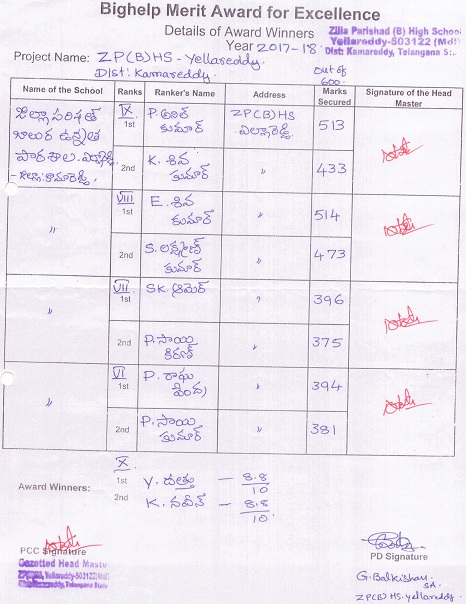 Bighelp Merit Award for Excellence
Details of Award Winners
Year 2017-18
Zilla Parishad (B) High School
Yellareddy-503122 (Mdl)
Dist: Kamareddy, Telangana State
Project Name: ZP(B)HS - Yellareddy.
Dist: Kamareddy.
Out of
600.
Name of the School Ranks Ranker's Name Address Marks Secured Signature of the Head Master
జిల్లా పరిషత్
బాలుర ఉన్నత
పాఠశాల
- జిల్లా: కామారెడ్డి,
IX
1st P. అజిత్ కుమార్ ZP(B)HS ఎల్లారెడ్డి 513
2nd K. శివ కుమార్ " 433
" VIII
1st E. శివ కుమార్ " 514
2nd S. లక్ష్మణ్ కుమార్ " 473
" VII
1st SK. ఆమెర్ " 396
2nd P. సాయి కిరణ్ " 375
" VI
1st P. రాఘ వేంద్ర 394
2nd P. సాయి కుమార్ " 381
X
Award Winners:
1st Y. దత్తు - 8.8/10
2nd K. నవీన్ - 8.8/10
PCC Signature
Gazetted Head Master
Yellareddy-503122(Mdl)
Telangana State
PD Signature
G. Balkishan
SA
ZP(B)HS. yellareddy